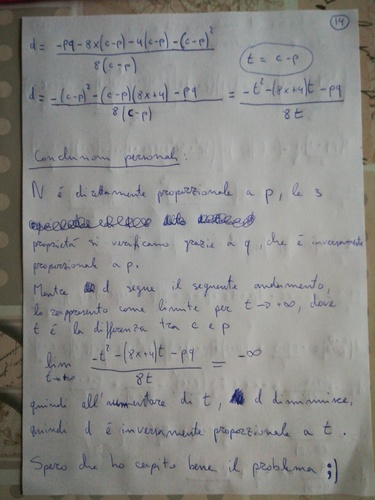 14
d = -pq - 8x(c-p) - 4(c-p) - (c-p)² / 8(c-p)
t = c-p
d = -(c-p)² - (c-p)(8x+4) - pq / 8(c-p) = -t² - (8x+4)t - pq / 8t
Conclusioni personali:
N è direttamente proporzionale a p, le 3
proprietà si verificano grazie a q, che è inversamente
proporzionale a p.
Mentre d segue il seguente andamento,
lo rappresento come limite per t → +∞, dove
t è la differenza tra c e p
lim t→+∞ -t² - (8x+4)t - pq / 8t = -∞
quindi all'aumentare di t, d diminuisce,
quindi d è inversamente proporzionale a t.
Spero che ho capito bene il problema ;)